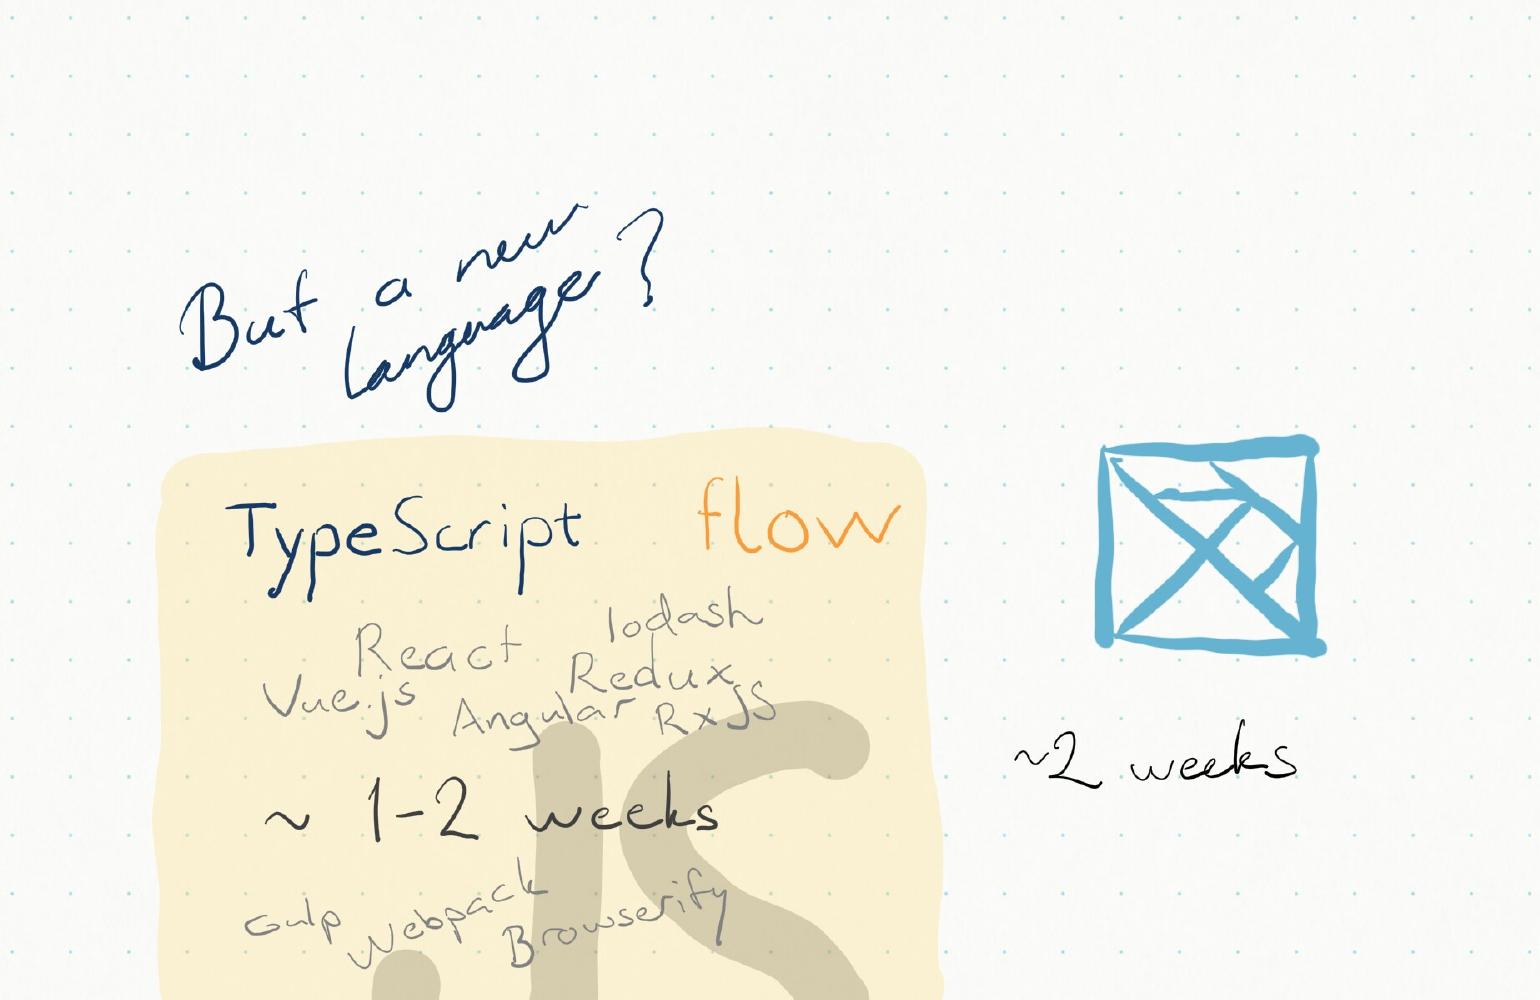 But a new
language?
TypeScript flow
React lodash
Vue.js Redux
Angular RxJS
~ 1-2 weeks
~2 weeks
Gulp Webpack
Browserify
JS